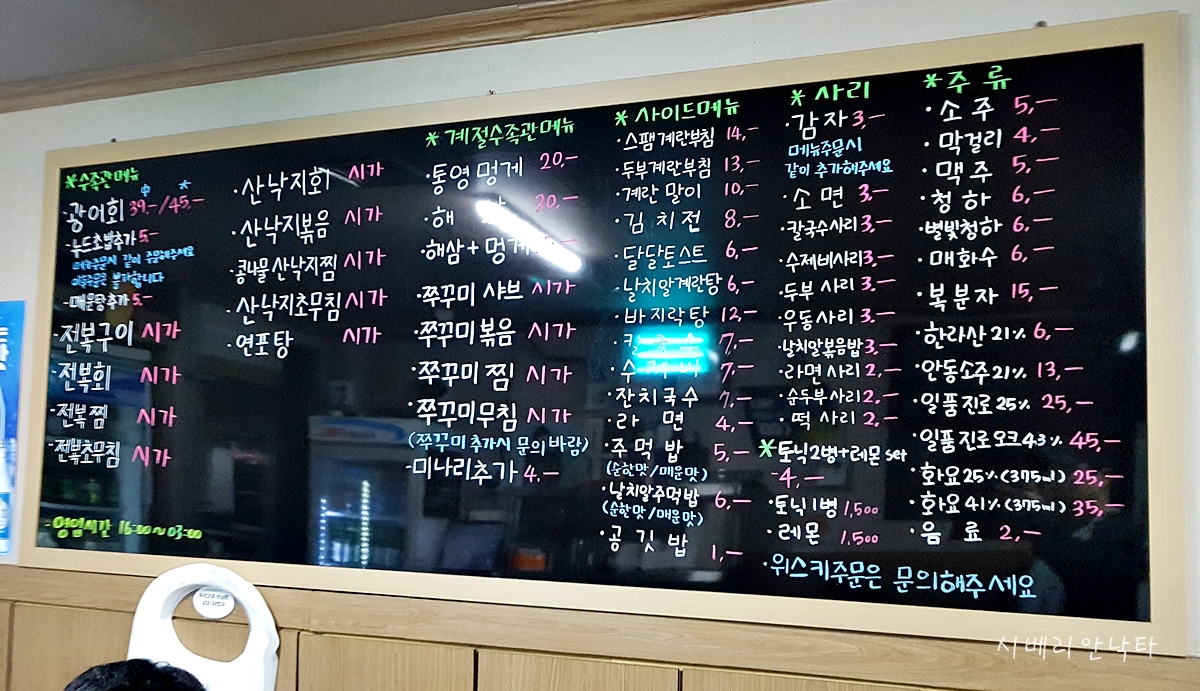 *수족관메뉴
中 大
·광어회 39,-/45,-
-누드초밥추가 5,-
메뉴주문시 같이 주문해주세요
이후주문은 불가합니다
-매운탕추가 5,-
-전복구이 시가
-전복회 시가
-전복찜 시가
-전복초무침 시가
-영업시간 16:00~03:00
·산낙지회 시가
·산낙지볶음 시가
·콩나물산낙지찜 시가
·산낙지초무침 시가
·연포탕 시가
*계절수족관메뉴
·통영멍게 20,-
·해 30,-
·해삼+멍게
·쭈꾸미 샤브 시가
·쭈꾸미볶음 시가
·쭈꾸미 찜 시가
·쭈꾸미무침 시가
(쭈꾸미 추가시 문의 바람)
-미나리추가 4,-
*사이드메뉴
·스팸계란부침 14,-
·두부계란부침 13,-
·계란 말이 10,-
·김 치 전 8,-
·달달토스트 6,-
·날치알계란탕 6,-
·바지락탕 12,-
7,-
7,-
·잔치국수 7,-
·라 면 4,-
·주 먹 밥 5,-
(순한맛/매운맛)
·날치알주먹밥 6,-
(순한맛/매운맛)
·공 깃 밥 1,-
*사리
·감자 3,-
메뉴주문시
같이 추가해주세요
·소 면 3,-
·칼국수사리 3,-
·수제비사리 3,-
·두부 사리 3,-
·우동사리 3,-
·날치알볶음밥 3,-
·라면 사리 2,-
·순두부사리 2,-
·떡 사리 2,-
*토닉2병+레몬 set
-4,-
·토닉1병 1,500
·레몬 1,500
·위스키주문은 문의해주세요
*주 류
·소 주 5,-
·막걸리 4,-
·맥 주 5,-
·청 하 6,-
·별빛청하 6,-
·매화수 6,-
·복분자 15,-
·한라산 21% 6,-
·안동소주 21% 13,-
·일품진로 25% 25,-
·일품진로오크 43% 45,-
·화요 25%(375ml) 25,-
·화요 41%(375ml) 35,-
·음 료 2,-
시베리안낙타